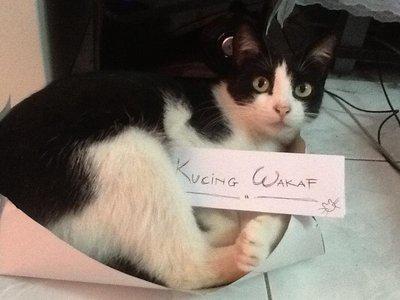 Kucing Wakaf